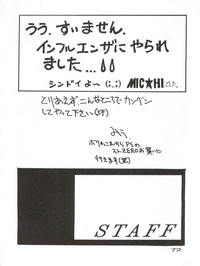 うう、すいません、
インフルエンザにやられ
ました...
シンドイよ〜(;_;) MIC★HI でした。
とりあえずこんなところでカンベン
してやって下さい(汗)
みう、
STAFF
72